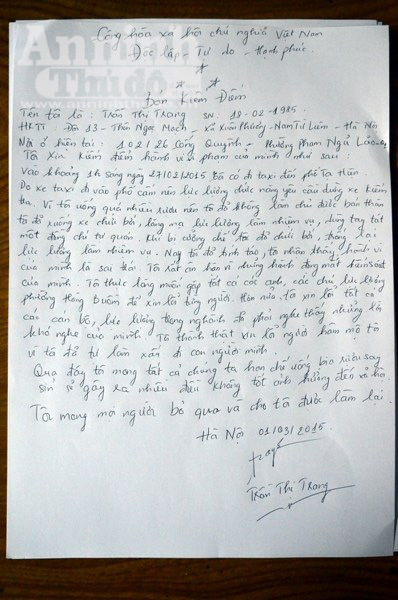 An ninh
Thủ đô
Cộng hòa xã hội chủ nghĩa Việt Nam
Độc lập - Tự do - Hạnh phúc.
Đơn Kiểm Điểm
Tên tô là : Trần Thị Trang sn : 18-02-1985.
HKTT : Đội 13 - Thôn Ngọc Mạch - Xã Xuân Phương - Nam Từ Liêm - Hà Nội
Nơi ở hiện tại : 102/26 Cống Quỳnh - Phường Phạm Ngũ Lão
Tô xin kiểm điểm hành vi vi phạm của mình như sau :
Vào khoảng 1h sáng ngày 27/02/2015 tô có đi taxi đến phố Tạ Hiện
Do xe taxi đi vào phố cấm nên lực lượng chức năng yêu cầu dừng xe kiểm
tra. Vì tô uống quá nhiều rượu nên tô đã không làm chủ được bản thân
tô đã xuống xe chửi bới, lăng mạ lực lượng làm nhiệm vụ, dùng tay tát
một đồng chí tự quản. Khi bị cưỡng chế tô đã chửi bới, chống lại
lực lượng làm nhiệm vụ. Nay tô đã tỉnh táo, tô nhận thấy hành vi
của mình là sai trái. Tô rất ân hận vì những hành động mất kiểm soát
của mình. Tô thức lòng muốn gặp tất cả các anh, các chú lực lượng
phường Hàng Buồm để xin lỗi từng người. Hơn nữa tô xin lỗi tất cả
các cán bộ, lực lượng trong nghành đã phải nghe thấy những lời
khó nghe của mình. Tô thành thật xin lỗi người hâm mộ tô
vì tô đã tự làm xấu đi con người mình.
Qua đây tô mong tất cả chúng ta hạn chế uống bia rượu say
sỉn sẽ gây ra nhiều điều không tốt ảnh hưởng đến xã hội
Tô mong mọi người bỏ qua và cho tô được làm lại.
Hà Nội 01/03/2015.
Trần Thị Trang